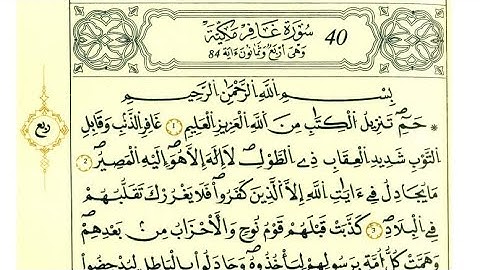 سُورَةُ غَافِرٍ مَكِّيَّةٌ 40
وَهِيَ أَرْبَعٌ وَثَمَانُونَ ءَايَةً 84
بِسْمِ اللَّهِ الرَّحْمَٰنِ الرَّحِيمِ
* حَمٓ تَنزِيلُ الْكِتَٰبِ مِنَ اللَّهِ الْعَزِيزِ الْعَلِيمِ 1 غَافِرِ الذَّنۢبِ وَقَابِلِ
ربع
التَّوْبِ شَدِيدِ الْعِقَابِ ذِے الطَّوْلِ لَا إِلَٰهَ إِلَّا هُوَ إِلَيْهِ الْمَصِيرُ 2
مَا يُجَادِلُ فِے ءَايَٰتِ اللَّهِ إِلَّا الَّذِينَ كَفَرُوا فَلَا يَغْرُرْكَ تَقَلُّبُهُمْ
فِے الْبِلَادِ 3 كَذَّبَتْ قَبْلَهُمْ قَوْمُ نُوحٍ وَالْأَحْزَابُ مِنۢ بَعْدِهِمْ
وَهَمَّتْ كُلُّ أُمَّةٍ بِرَسُولِهِمْ لِيَأْخُذُوهُ وَجَادَلُوا بِالْبَاطِلِ لِيُدْحِضُوا